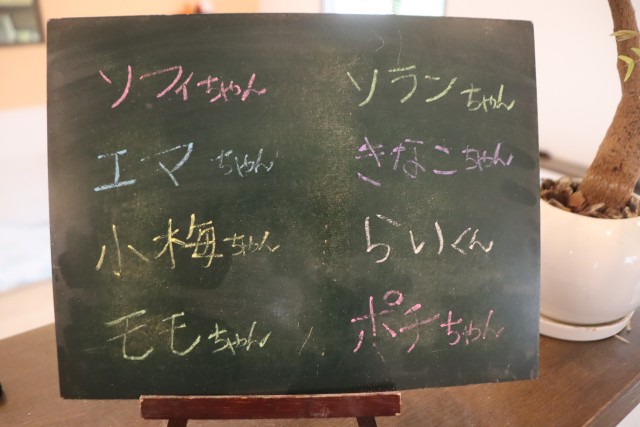 ソフィちゃん
エマちゃん
小梅ちゃん
モモちゃん
ソランちゃん
きなこちゃん
らいくん
ポチちゃん